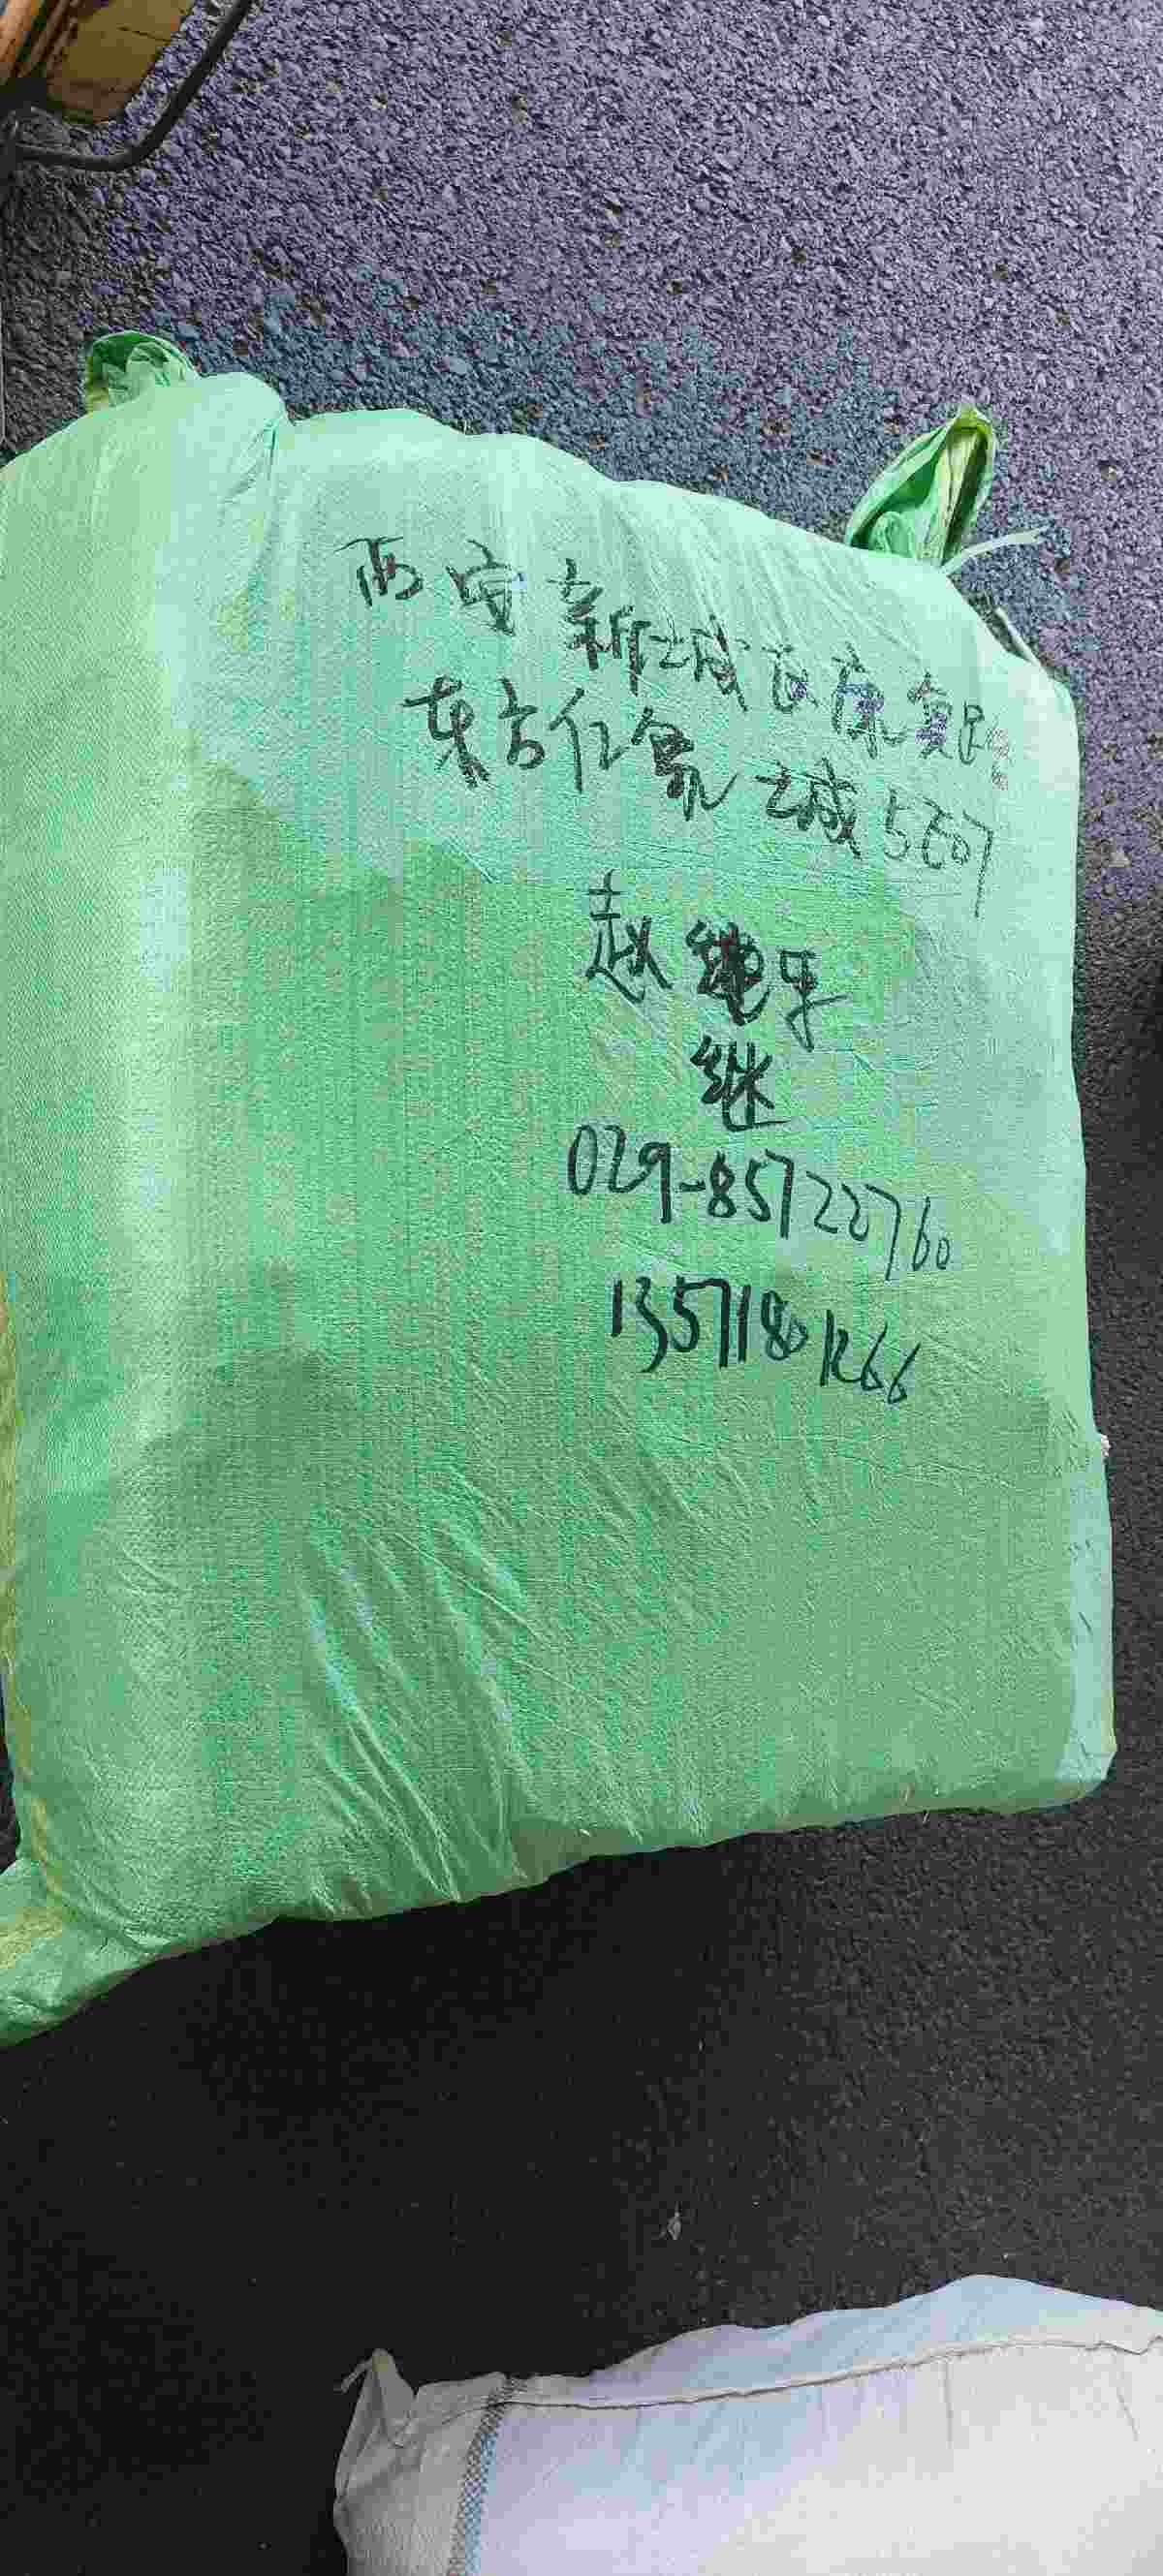 西安新城区康复路
东方亿象城5E07
赵继平
继
029-85722760
13571801266